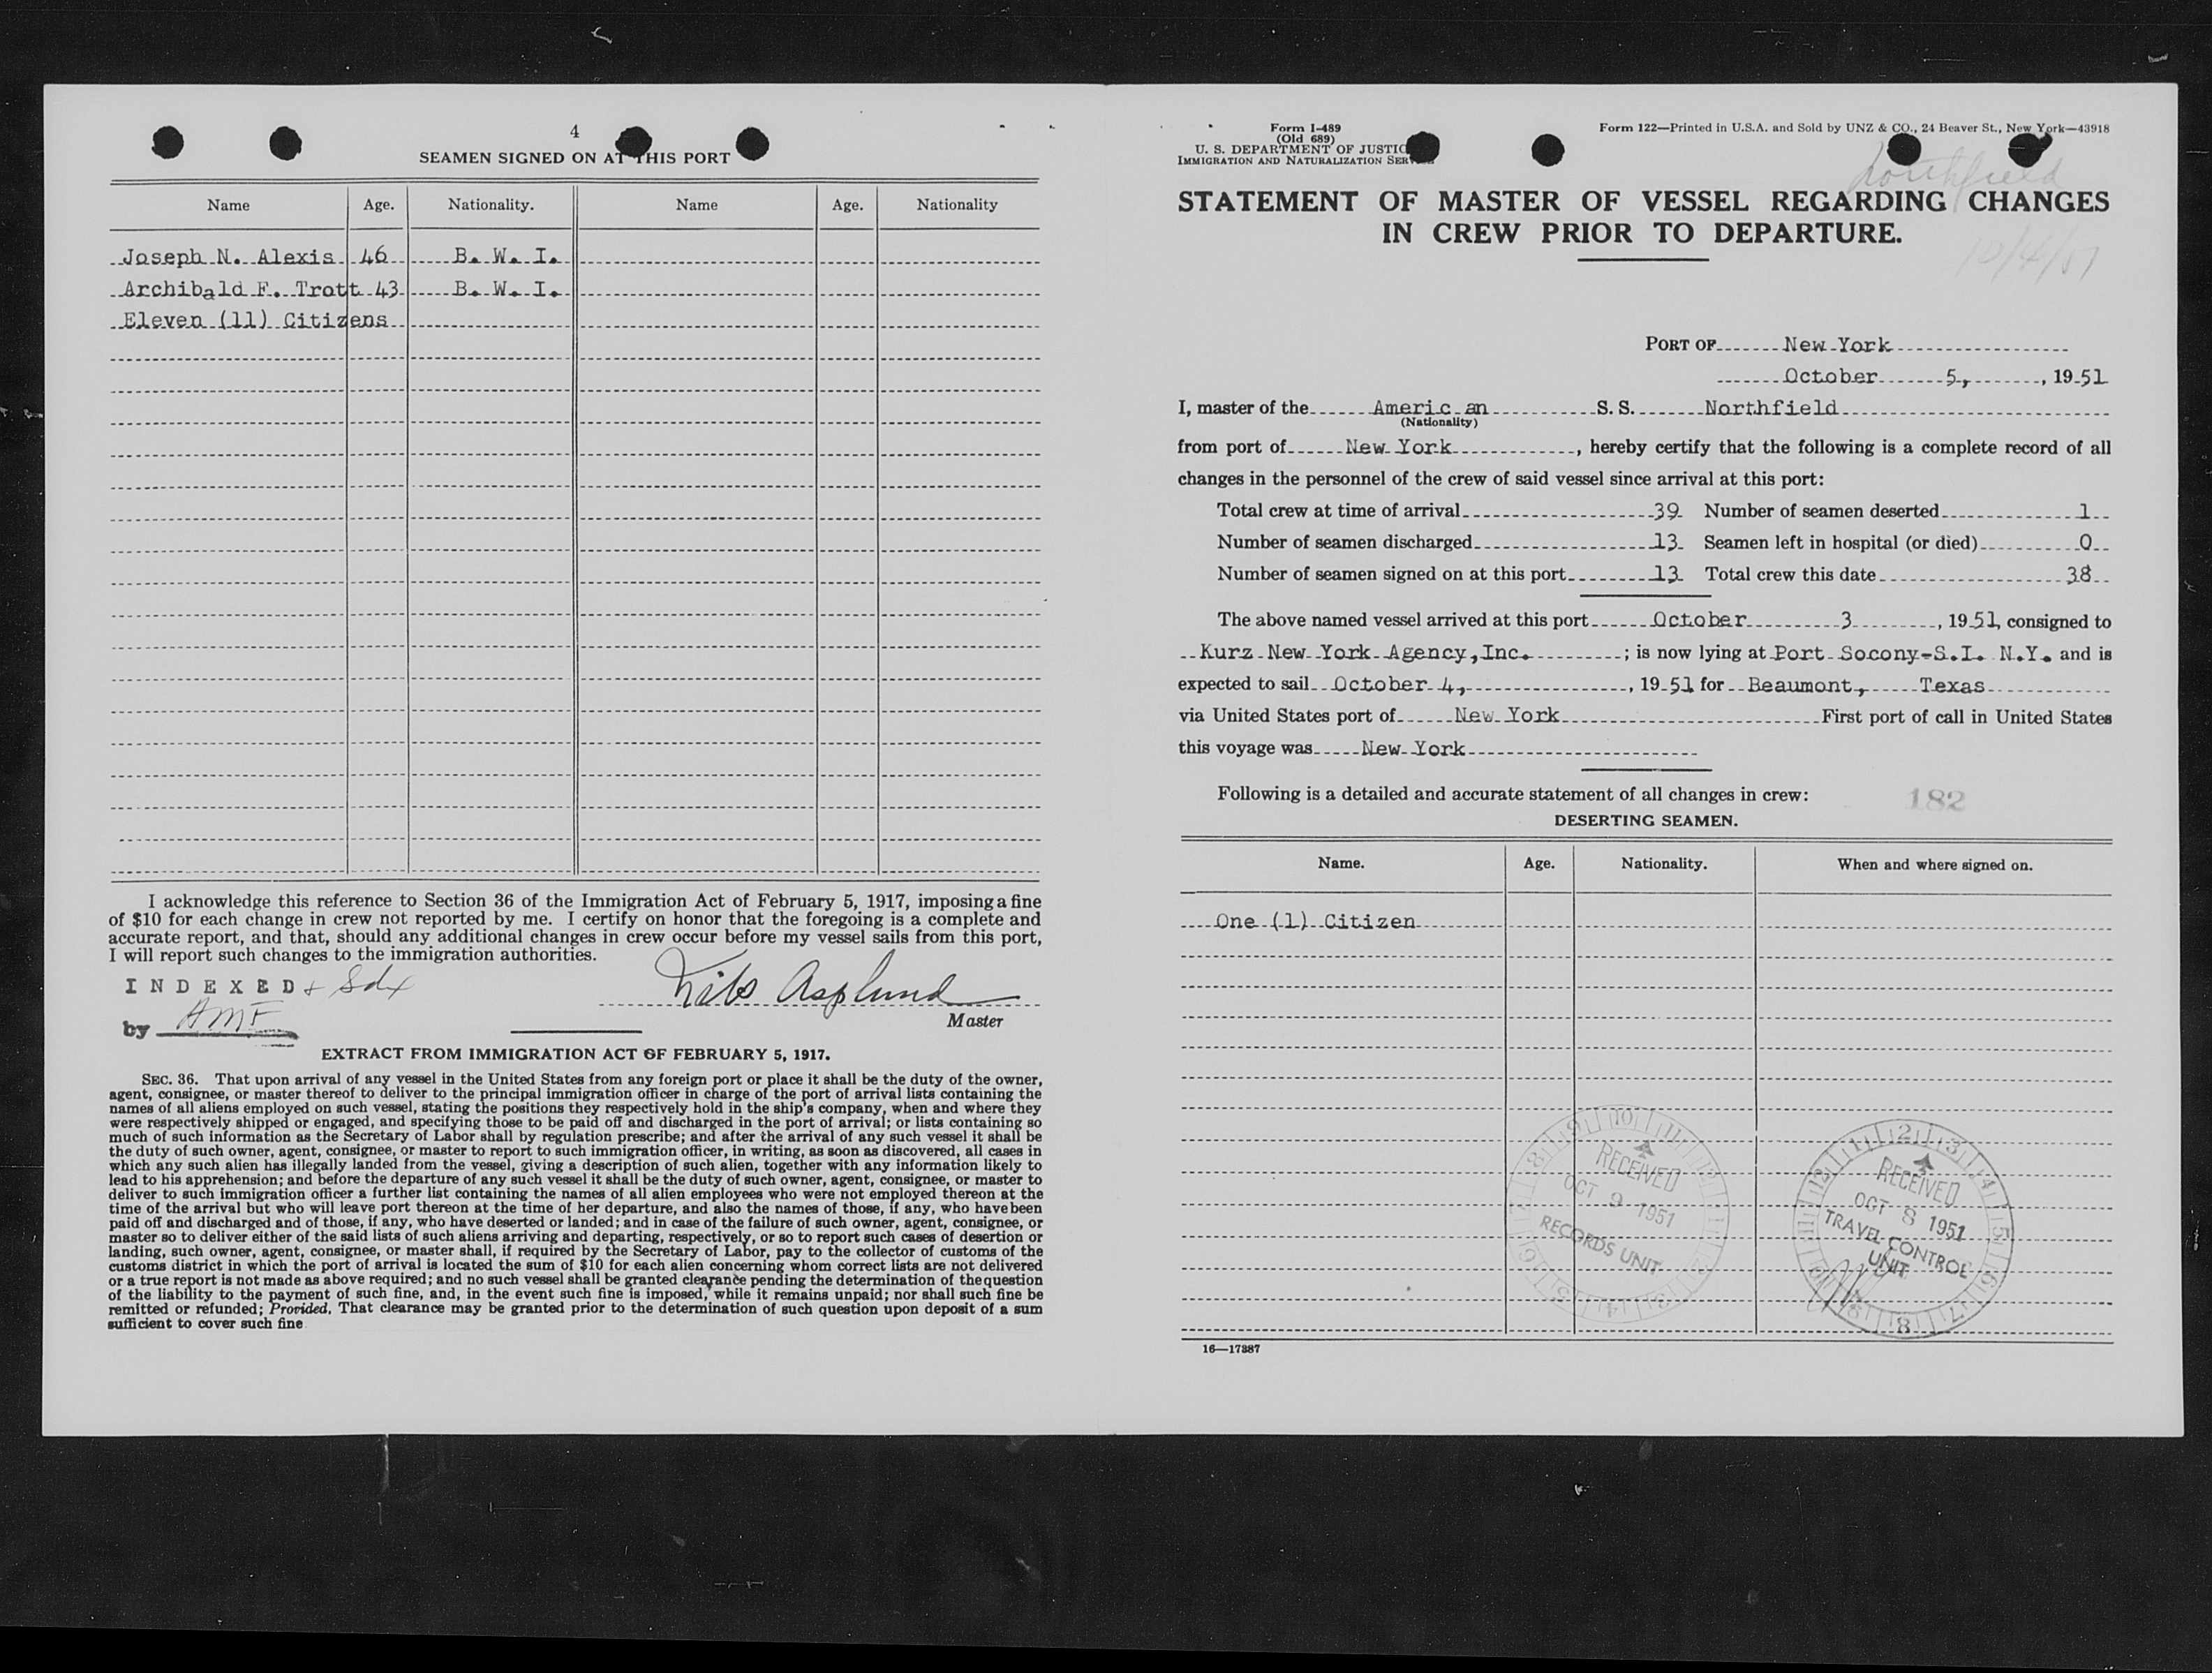 4
SEAMEN SIGNED ON AT THIS PORT
Name Age. Nationality. Name Age. Nationality
Joseph N. Alexis 46 B. W. I.
Archibald F. Trott 43 B. W. I.
Eleven (11) Citizens
I acknowledge this reference to Section 36 of the Immigration Act of February 5, 1917, imposing a fine
of $10 for each change in crew not reported by me. I certify on honor that the foregoing is a complete and
accurate report, and that, should any additional changes in crew occur before my vessel sails from this port,
I will report such changes to the immigration authorities.
INDEXED
Nils Asplund
by AMF
Master
EXTRACT FROM IMMIGRATION ACT OF FEBRUARY 5, 1917.
SEC. 36. That upon arrival of any vessel in the United States from any foreign port or place it shall be the duty of the owner,
agent, consignee, or master thereof to deliver to the principal immigration officer in charge of the port of arrival lists containing the
names of all aliens employed on such vessel, stating the positions they respectively hold in the ship's company, when and where they
were respectively shipped or engaged, and specifying those to be paid off and discharged in the port of arrival; or lists containing so
much of such information as the Secretary of Labor shall by regulation prescribe; and after the arrival of any such vessel it shall be
the duty of such owner, agent, consignee, or master to report to such immigration officer, in writing, as soon as discovered, all cases in
which any such alien has illegally landed from the vessel, giving a description of such alien, together with any information likely to
lead to his apprehension; and before the departure of any such vessel it shall be the duty of such owner, agent, consignee, or master to
deliver to such immigration officer a further list containing the names of all alien employees who were not employed thereon at the
time of the arrival but who will leave port thereon at the time of her departure, and also the names of those, if any, who have been
paid off and discharged and of those, if any, who have deserted or landed; and in case of the failure of such owner, agent, consignee, or
master so to deliver either of the said lists of such aliens arriving and departing, respectively, or so to report such cases of desertion or
landing, such owner, agent, consignee, or master shall, if required by the Secretary of Labor, pay to the collector of customs of the
customs district in which the port of arrival is located the sum of $10 for each alien concerning whom correct lists are not delivered
or a true report is not made as above required; and no such vessel shall be granted clearance pending the determination of the question
of the liability to the payment of such fine, and, in the event such fine is imposed, while it remains unpaid; nor shall such fine be
remitted or refunded; Provided, That clearance may be granted prior to the determination of such question upon deposit of a sum
sufficient to cover such fine
Form I-489
(Old 689)
U. S. DEPARTMENT OF JUSTIC
IMMIGRATION AND NATURALIZATION SER
Form 122—Printed in U.S.A. and Sold by UNZ & CO., 24 Beaver St., New York—43918
Northfield
STATEMENT OF MASTER OF VESSEL REGARDING CHANGES
IN CREW PRIOR TO DEPARTURE.
10/4/51
PORT OF New York
October 5, , 1951
I, master of the Americ an S. S. Northfield
(Nationality)
from port of New York , hereby certify that the following is a complete record of all
changes in the personnel of the crew of said vessel since arrival at this port:
Total crew at time of arrival 39 Number of seamen deserted 1
Number of seamen discharged 13 Seamen left in hospital (or died) 0
Number of seamen signed on at this port 13 Total crew this date 38
The above named vessel arrived at this port October 3 , 1951, consigned to
Kurz New York Agency,Inc. ; is now lying at Port Socony-S.I. N.Y. and is
expected to sail October 4, , 1951 for Beaumont, Texas
via United States port of New York First port of call in United States
this voyage was New York
Following is a detailed and accurate statement of all changes in crew:
182
DESERTING SEAMEN.
Name. Age. Nationality. When and where signed on.
One (1) Citizen
RECEIVED
OCT 9 1951
RECORDS UNIT
RECEIVED
OCT 8 1951
TRAVEL CONTROL
UNIT
16—17387